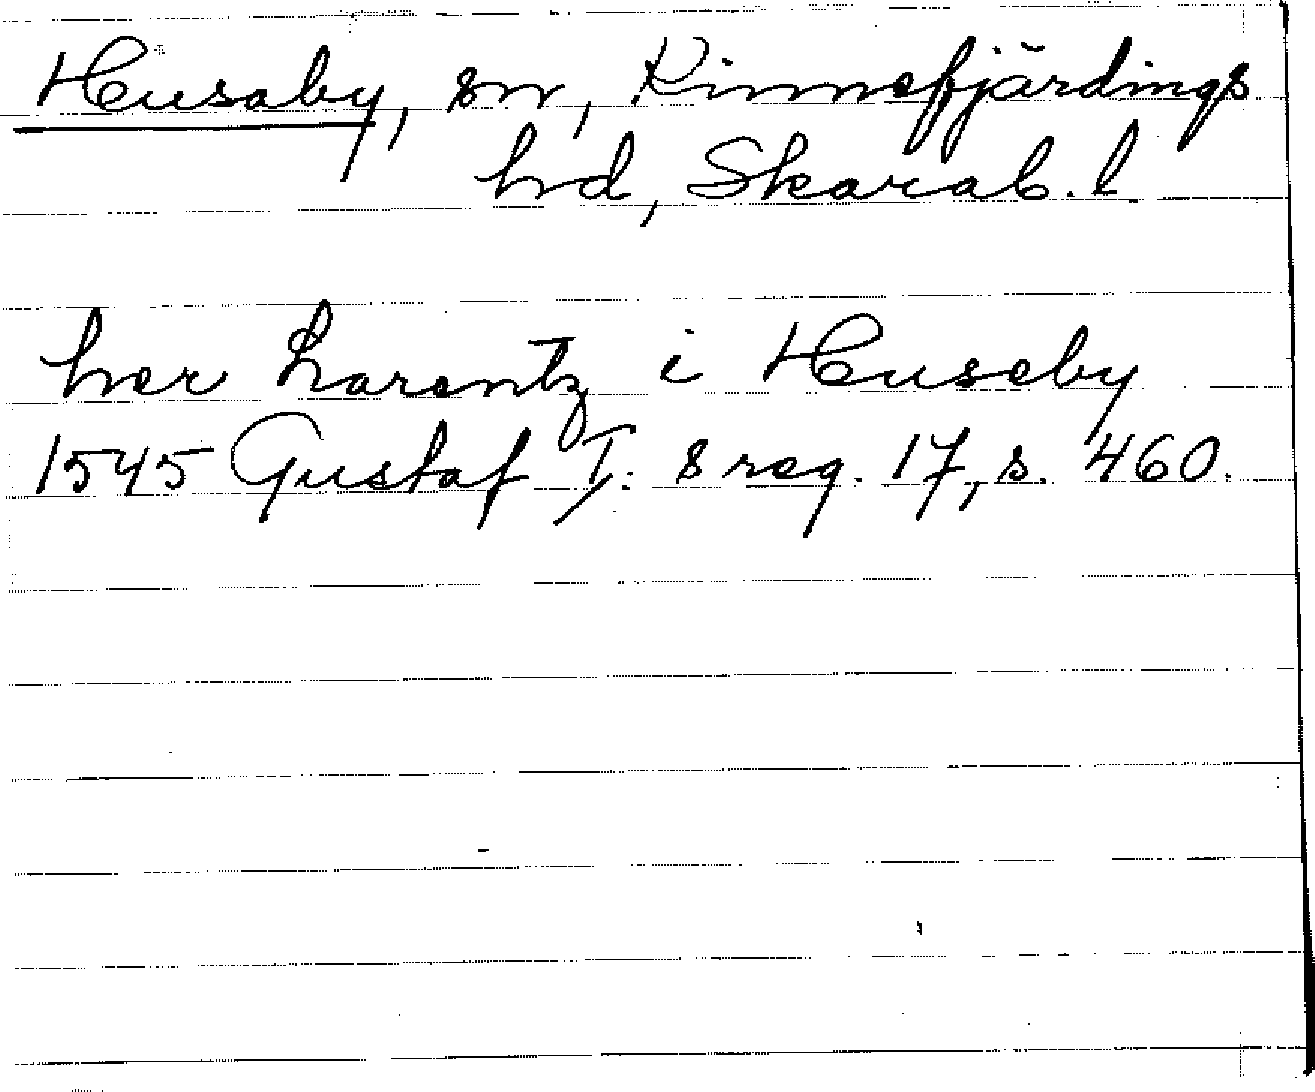 Husaby, sn, Kinnefjärdings
hd, Skarab. l
her Larentz i Huseby
1545 Gustaf I:s reg. 17, s. 460.